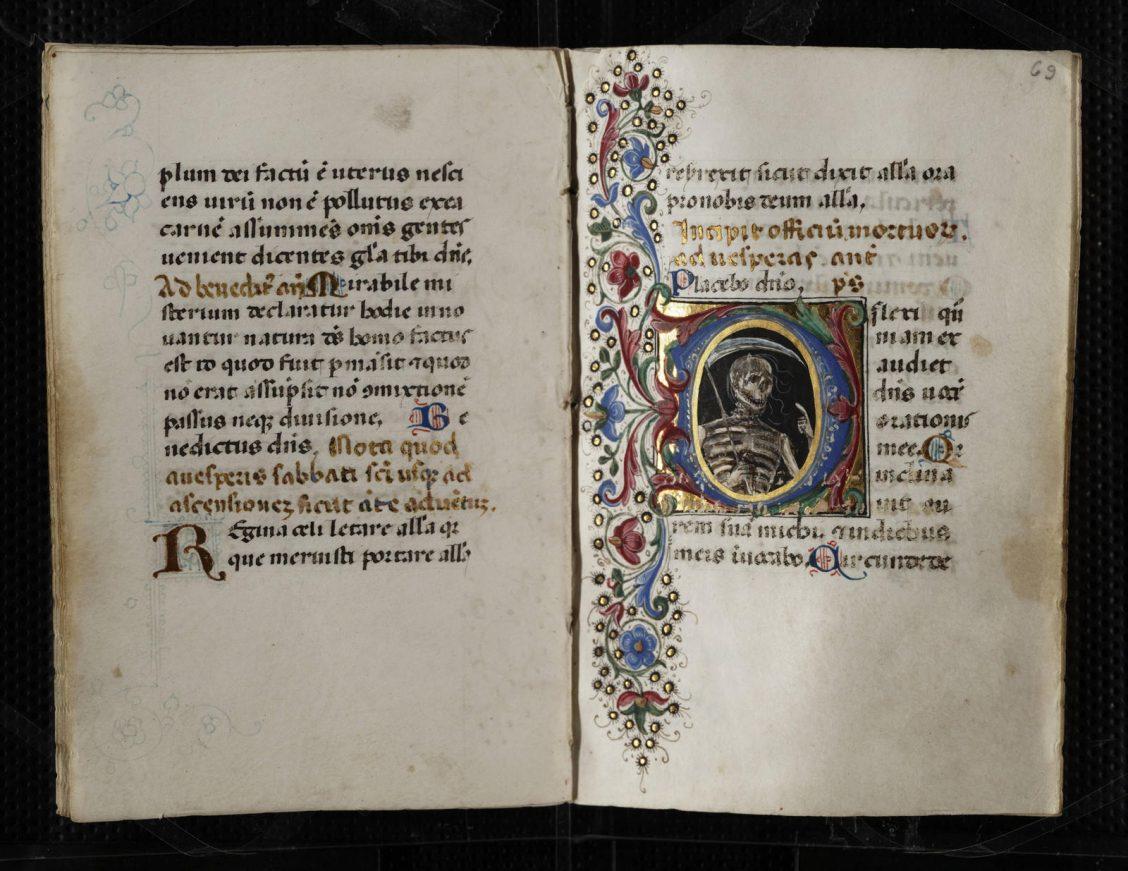 plum dei factū ē uterus nesci
ens uirū non ē pollutus ex ea
carnē assummēs om̄s gentes
uenient dicentes gl̄a tibi dn̄e.
Ad benedictꝰ an̄ Mirabile mi
sterium declaratur hodie inno
uantur natura ds̄ homo factus
est id quod fuit p̄māsit ⁊ quod
nō erat assūpsit nō ꝯmixtionē
passus neqꝫ diuisione. Be
nedictus dn̄s. Nota quod
a uesperis sabbati sc̄i usqꝫ ad
ascensionez ficut
REgina celi letare all̄a qꝛ
que meruisti portare all̄a
69
resurexit sicut dixit all̄a ora
pro nobis deum all̄a.
Incipit officiū mortuoꝝ.
ad uesperas ant̄
Placebo dn̄o. ps̄
Dilexi qm̄
niam ex
audiet
dn̄s uocē
orationis
mee. Qꝛ
inclina
uit au
rem suā michi. ⁊ in diebus
meis īuocabo. Circundede